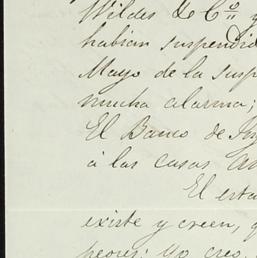 Wildes de Co y
habian suspendid
Mayo de la susp
mucha alarma;
El Banco de In
á las casas Am
El esta
existe y creen, q
peores: Yo creo,